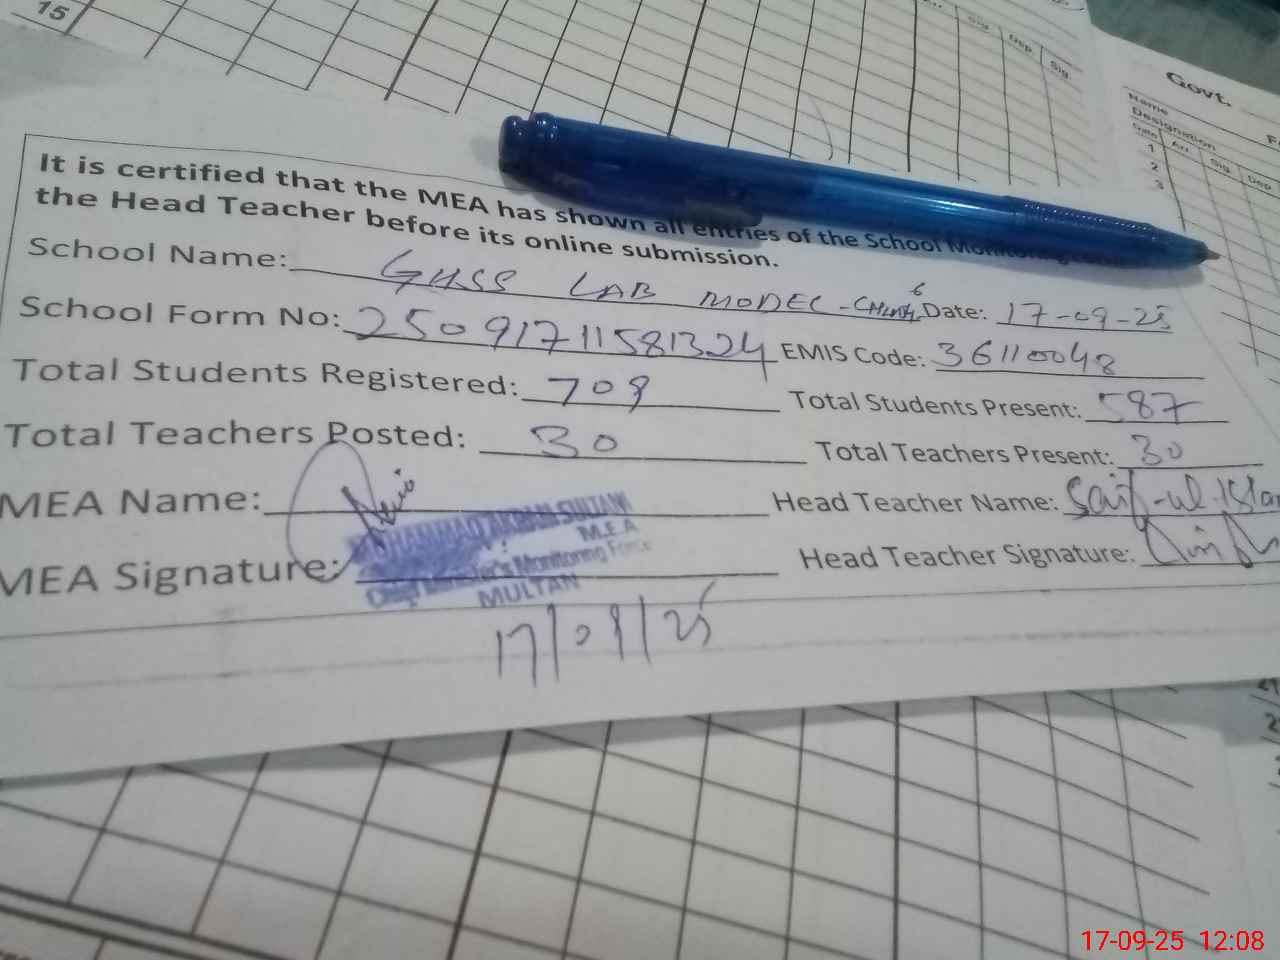 15
Sig.
Dep
Sig.
Govt.
Name
Designation
Date Arr. Sig Dep
1
2
3
It is certified that the MEA has shown all entries of the School Monitoring
the Head Teacher before its online submission.
School Name: GHSS LAB MODEL - Date: 17-09-25
School Form No: 25091711581324 EMIS Code: 36110048
Total Students Registered: 709 Total Students Present: 587
Total Teachers Posted: 30 Total Teachers Present: 30
MEA Name: Head Teacher Name: Saif-ul-Islam
MUHAMMAD AKRAM SULTAN
M.E.A
MEA Signature: Head Teacher Signature:
Chief Minister's Monitoring Force
MULTAN
17/09/25
17-09-25 12:08